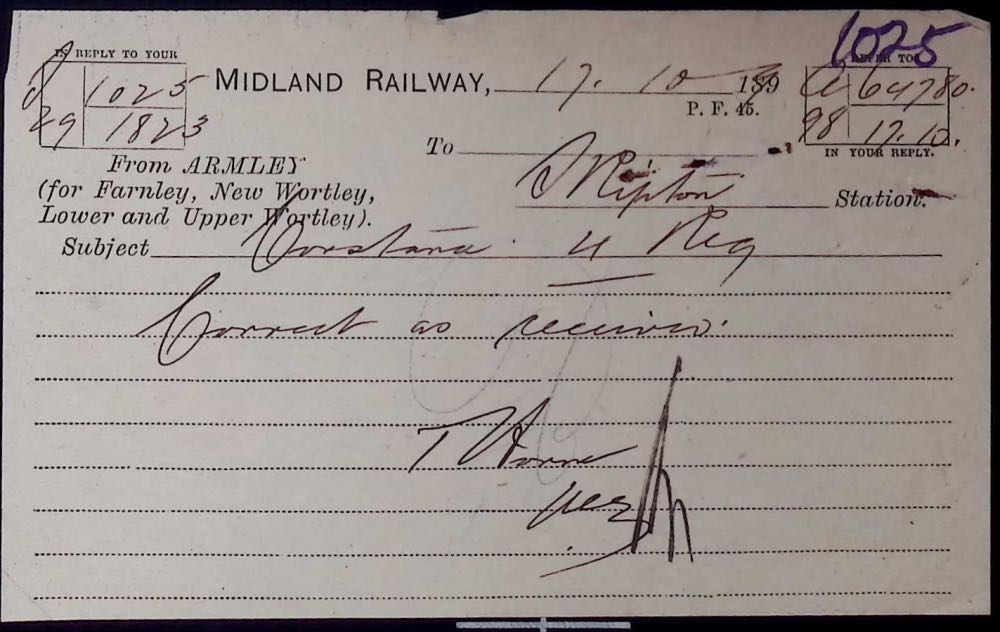 1025
IN REPLY TO YOUR
REFER TO
1025
MIDLAND RAILWAY, 17. 10 189
64780.
29 1823
P. F. 45.
98 17.10.
To
IN YOUR REPLY.
From ARMLEY
(for Farnley, New Wortley,
Skipton Station.
Lower and Upper Wortley).
Subject
Correct as received.
T Horne